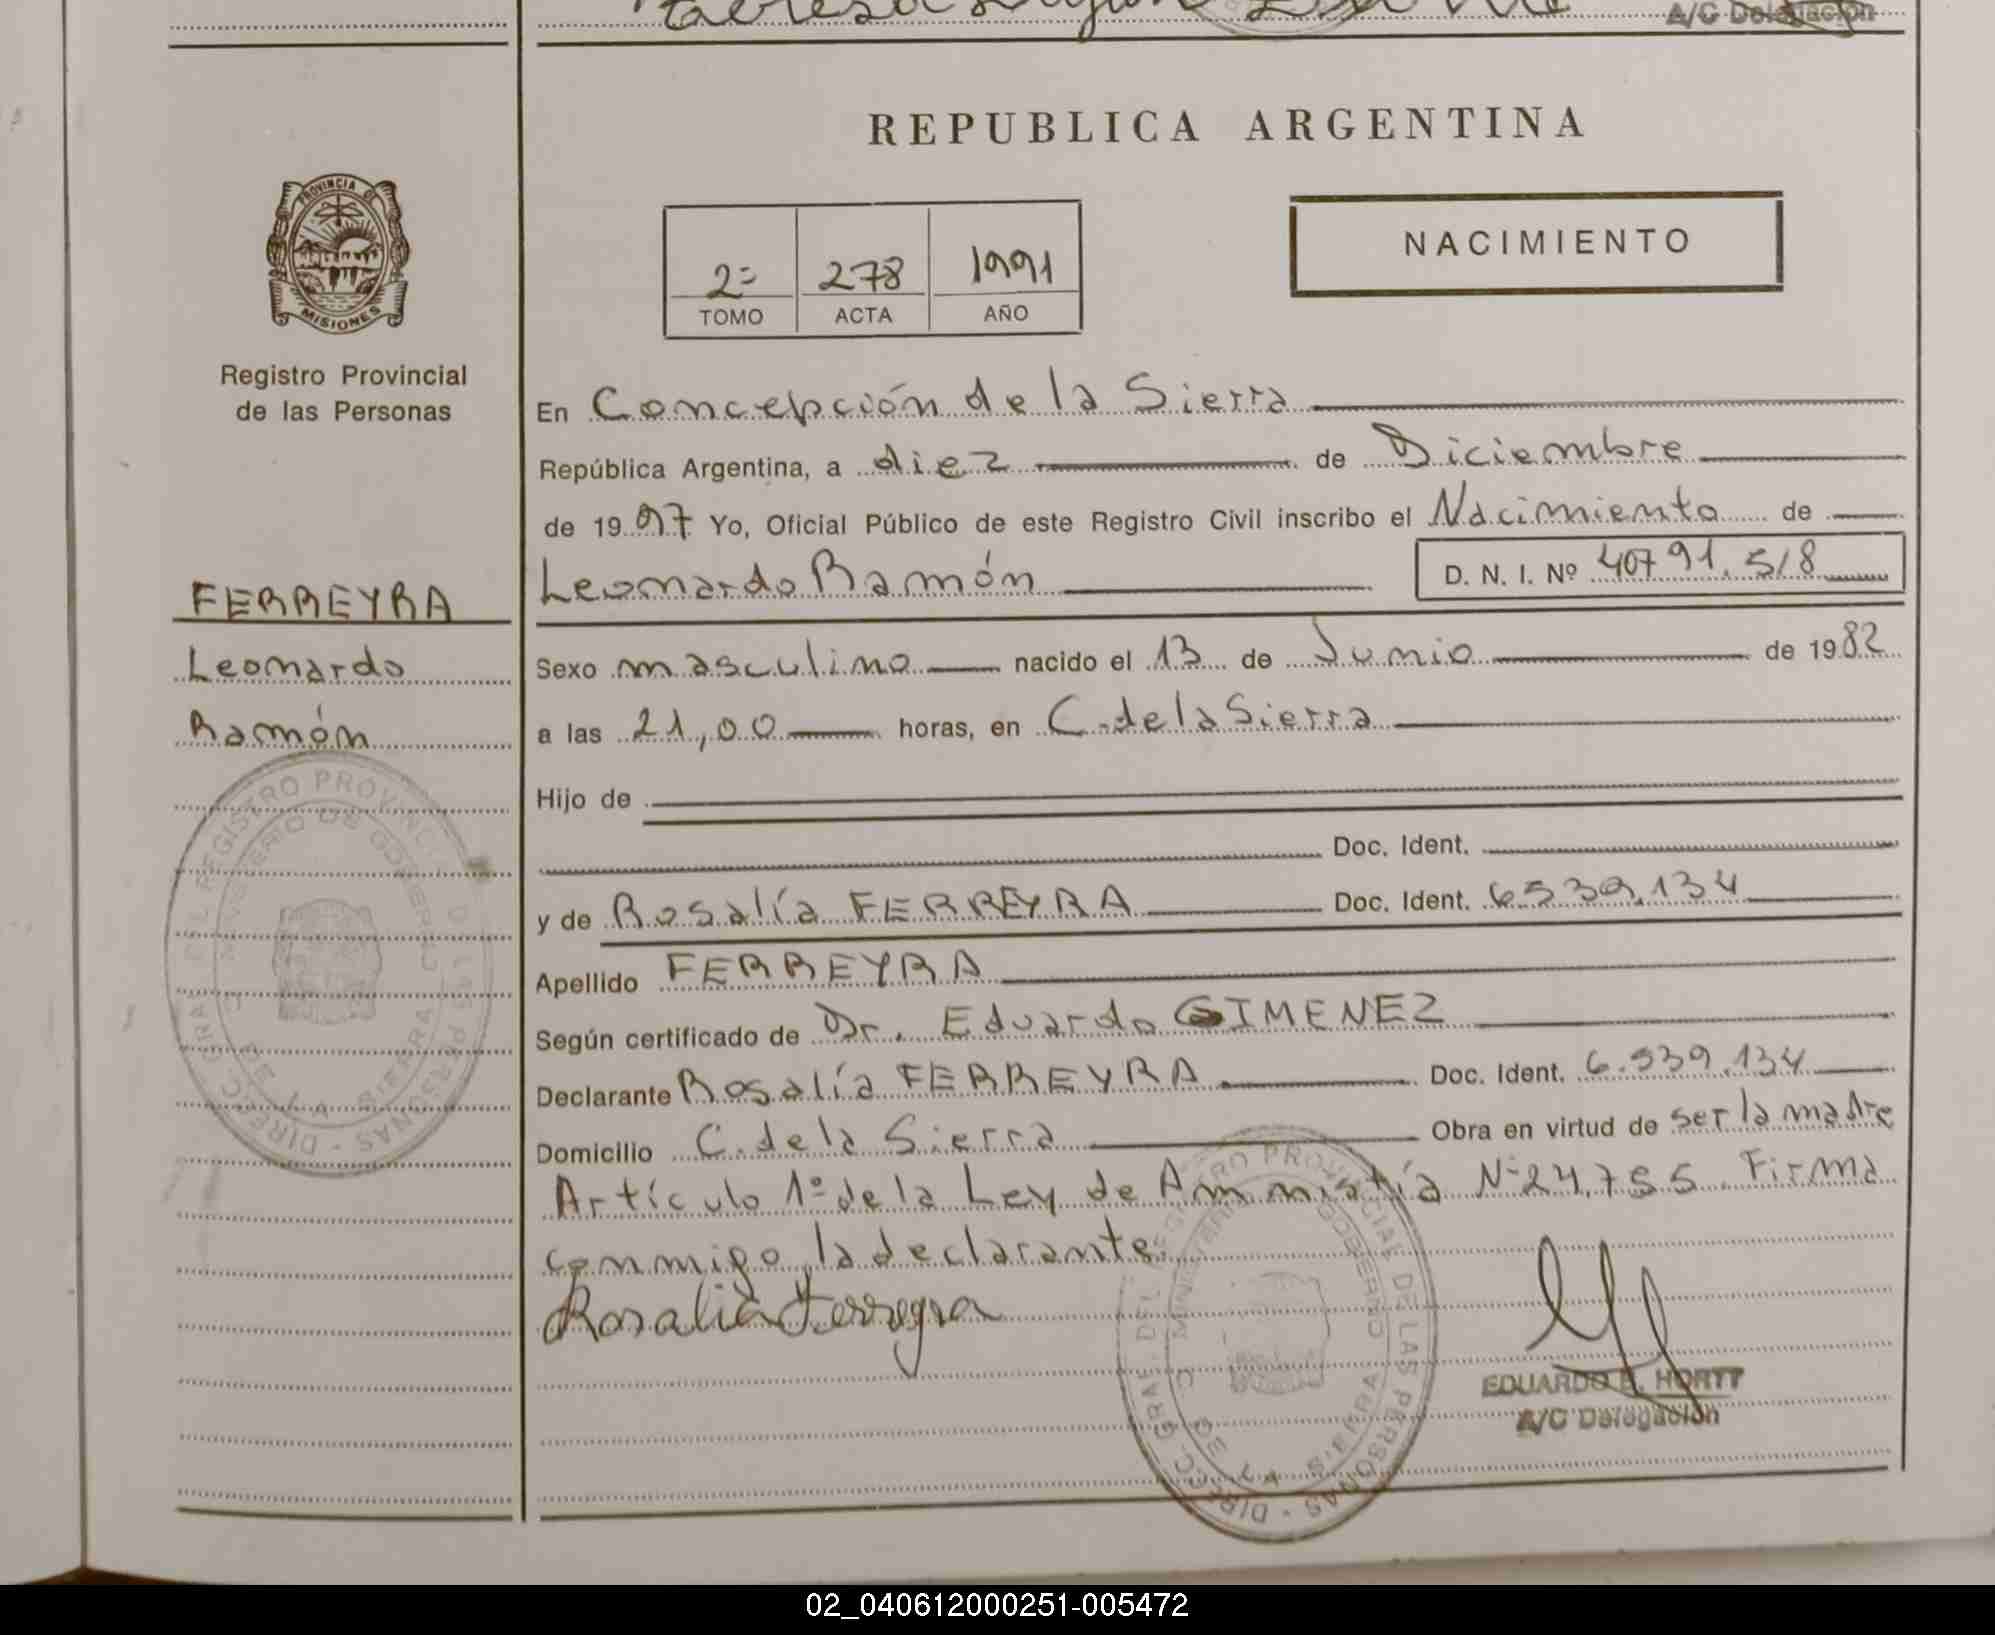 A/C Delegación
REPUBLICA ARGENTINA
PROVINCIA DE
MISIONES
NACIMIENTO
2º 278 1991
TOMO ACTA AÑO
Registro Provincial
de las Personas
En Concepción de la Sierra
República Argentina, a diez de Diciembre
de 1997 Yo, Oficial Público de este Registro Civil inscribo el Nacimiento de
Leonardo Ramón D. N. I. Nº 40791.518
FERREYRA
Leonardo
Ramón
Sexo masculino nacido el 13 de Junio de 1982
a las 21,00 horas, en C. de la Sierra
Hijo de
Doc. Ident.
y de Rosalía FERREYRA Doc. Ident. 6539.134
Apellido FERREYRA
Según certificado de Dr. Eduardo GIMENEZ
Declarante Rosalía FERREYRA Doc. Ident. 6.539.134
Domicilio C. de la Sierra Obra en virtud de ser la madre
Artículo 1º de la Ley de Ammistía Nº 24.755. Firma
conmigo, la declarante.
Rosalia Ferreyra
EDUARDO E. HORTT
A/C Delegación
DIREC. GRAL. DEL REGISTRO PROVINCIAL DE LAS PERSONAS
MINISTERIO DE GOBIERNO
C. DE LA SIERRA
DIREC. GRAL. DEL REGISTRO PROVINCIAL DE LAS PERSONAS
MINISTERIO DE GOBIERNO
C. DE LA SIERRA
02_040612000251-005472